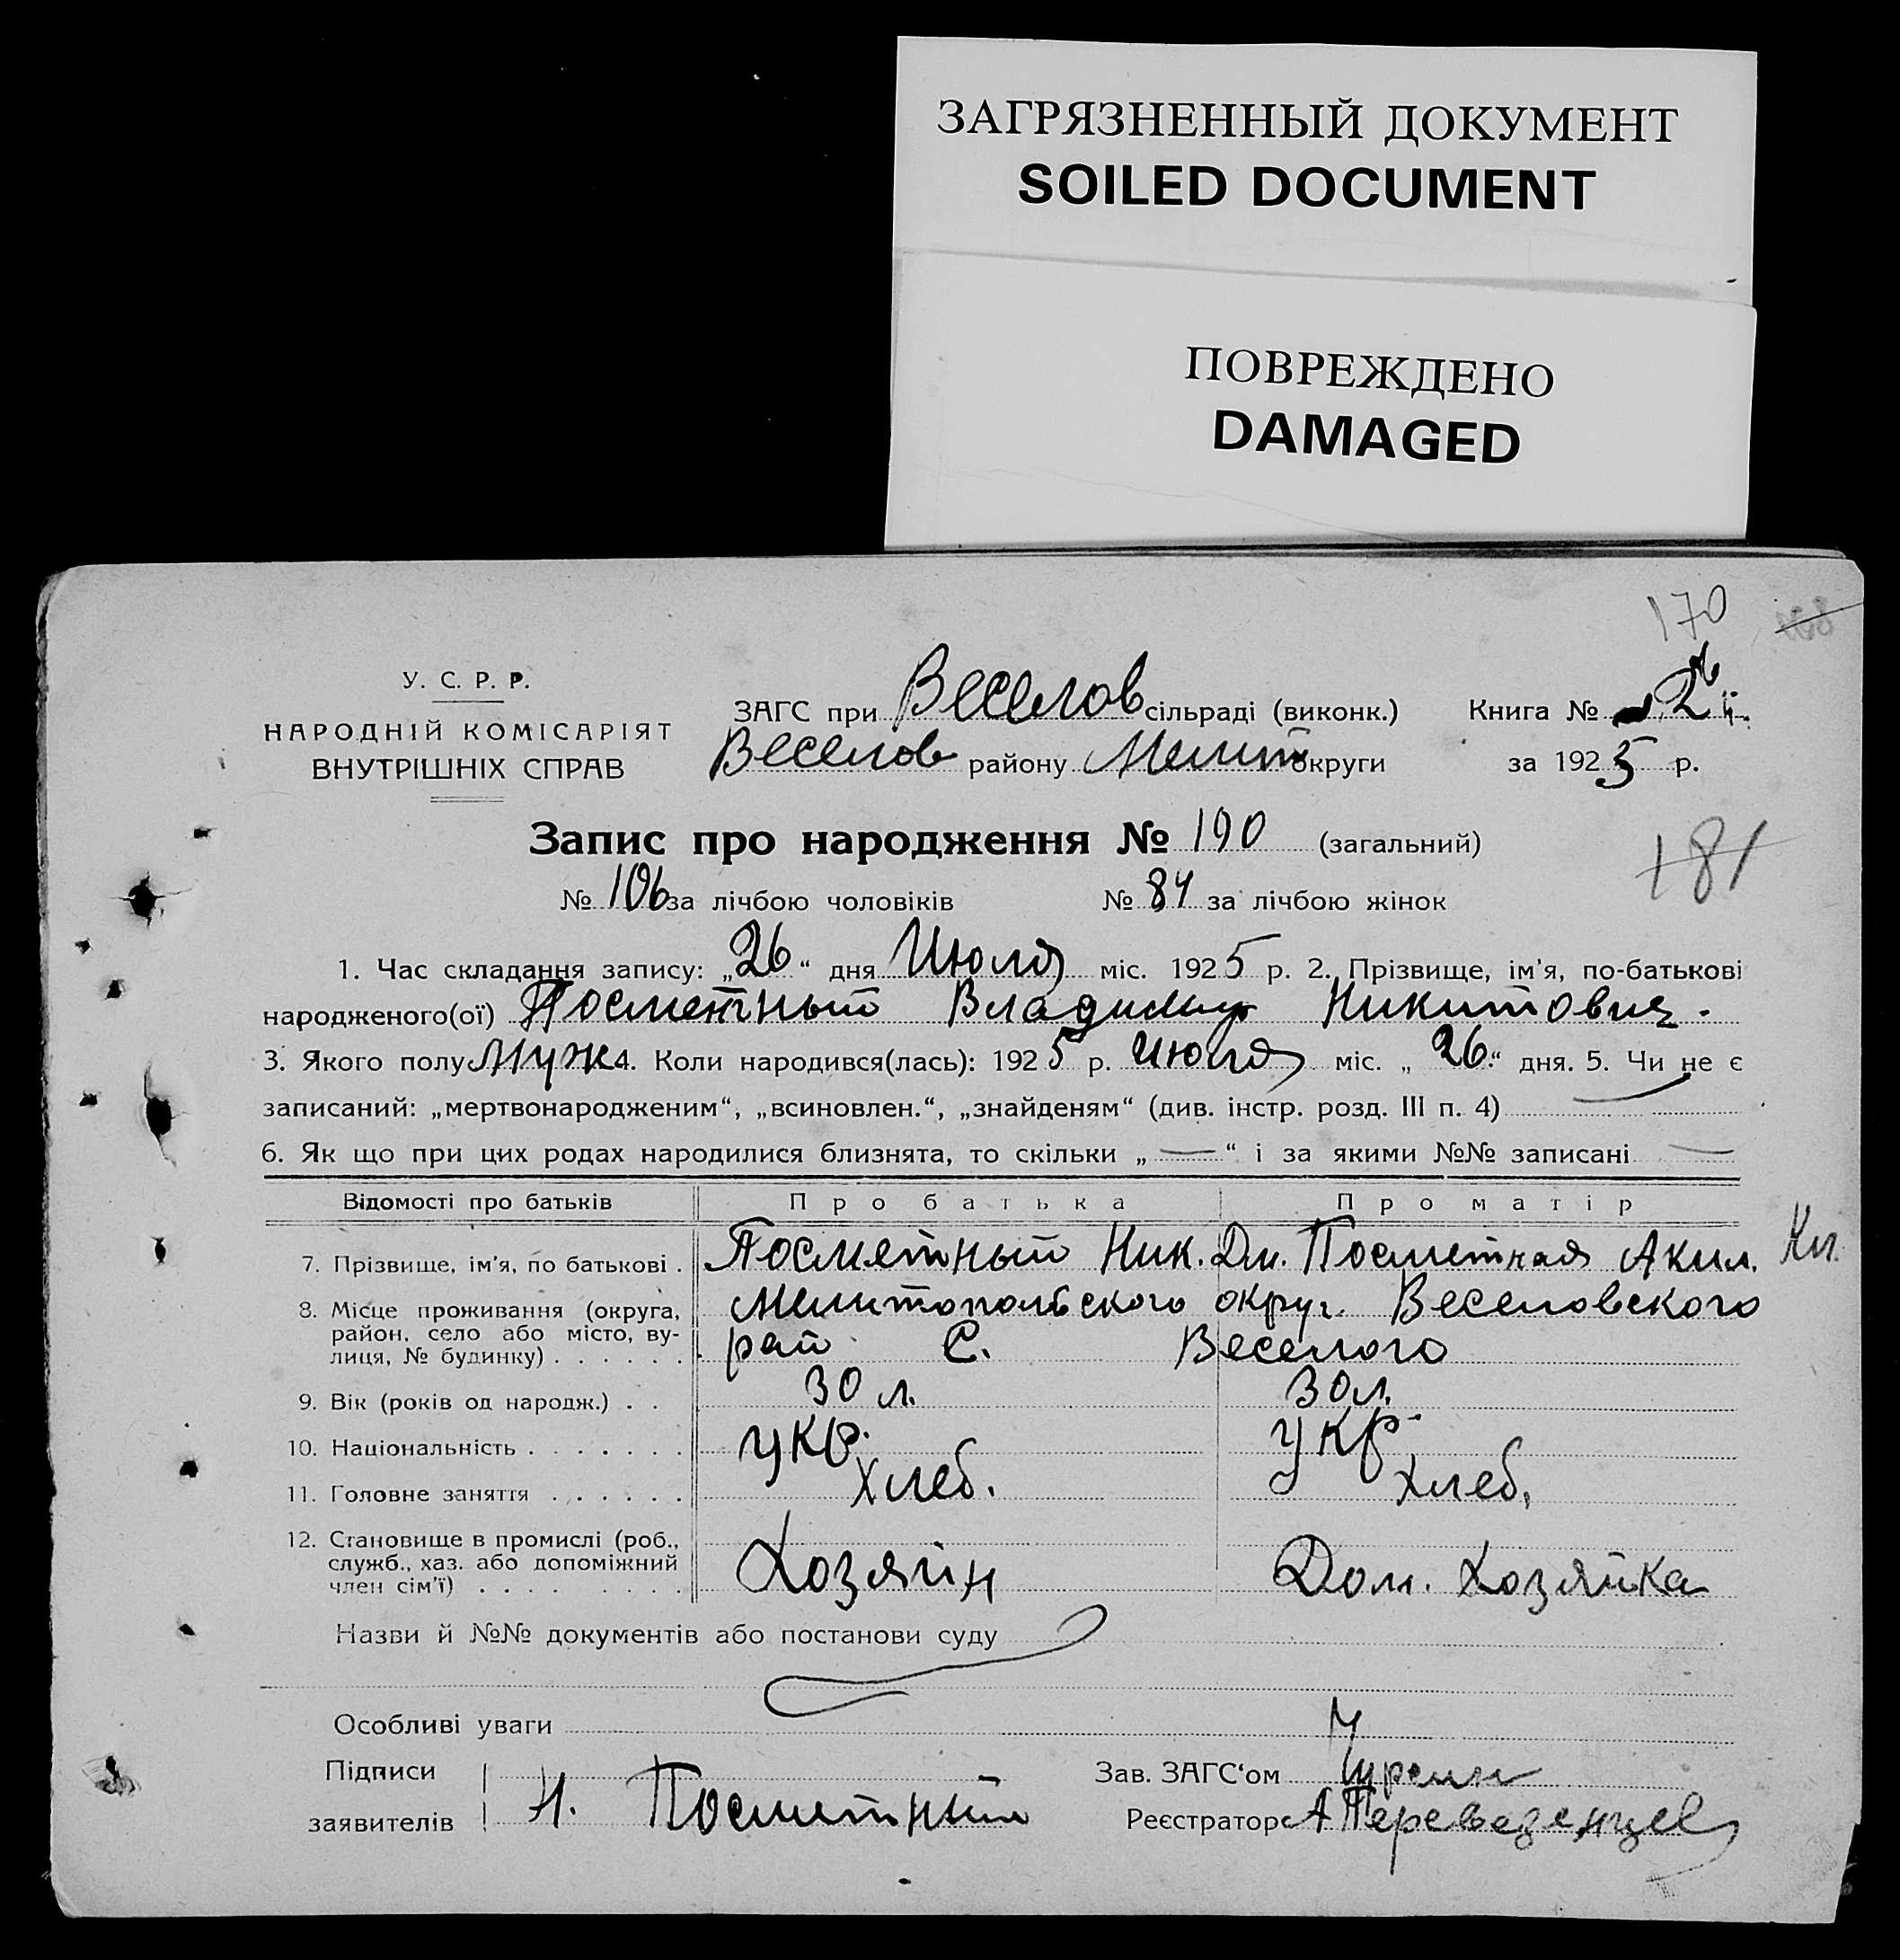 ЗАГРЯЗНЕННЫЙ ДОКУМЕНТ
SOILED DOCUMENT
ПОВРЕЖДЕНО
DAMAGED
170
У. С. Р. Р.
НАРОДНІЙ КОМІСАРІЯТ
ВНУТРІШНІХ СПРАВ
ЗАГС при Веселов сільраді (виконк.) Книга № 2
Веселов району Мелит округи за 1925 р.
Запис про народження № 190 (загальний)
181
№ 106 за лічбою чоловіків № 84 за лічбою жінок
1. Час складання запису: „26“ дня Июля міс. 1925 р. 2. Прізвище, ім'я, по-батькові
народженого(ої) Посметный Владимир Никитович.
3. Якого полу Муж 4. Коли народився(лась): 1925 р. июля міс. „26.“ дня. 5. Чи не є
записаний: „мертвонародженим“, „всиновлен.“, „знайденям“ (див. інстр. розд. III п. 4)
6. Як що при цих родах народилися близнята, то скільки „—“ і за якими №№ записані —
Відомості про батьків Про батька Про матір
7. Прізвище, ім'я, по батькові . Посметный Ник. Дм. Посметная Акил. Ки.
8. Місце проживання (округа, Мелитопольского округ. Веселовского
район, село або місто, ву-
лиця, № будинку) . . . . . . рай С. Веселого
9. Вік (років од народж.) . . 30 л. 30 л.
10. Національність . . . . . . . укр. укр.
11. Головне заняття . . . . . . хлеб. хлеб.
12. Становище в промислі (роб.,
служб., хаз. або допоміжний
член сім'ї) . . . . . . . . . Хозяин Дом. Хозяйка
Назви й №№ документів або постанови суду
Особливі уваги
Підписи Зав. ЗАГС'ом
заявителів Н. Посметный Реєстратор А Переведенцев